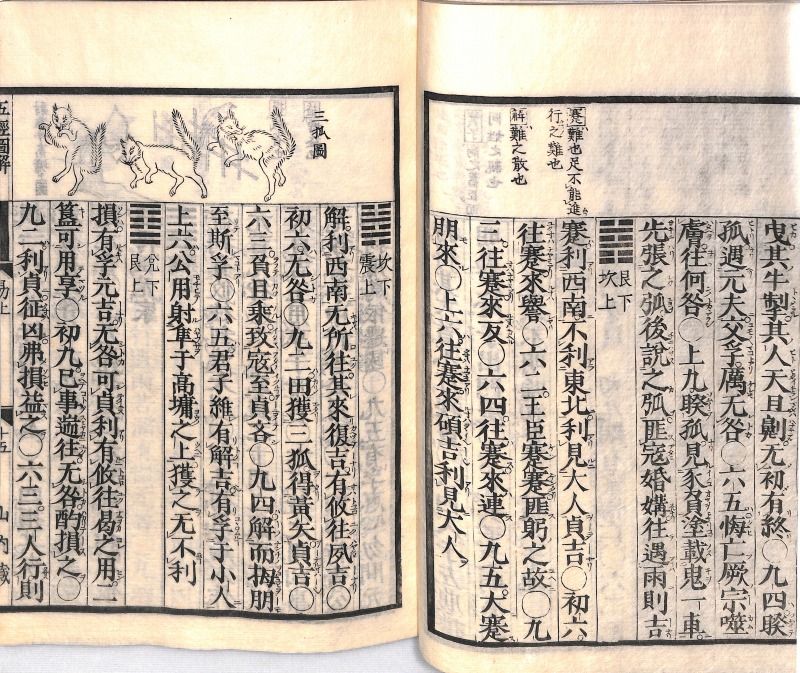 蹇難也足不能進
行之難也
解難之散也
曳其牛掣其人天且劓无初有終〇九四睽
孤遇元夫交孚厲无咎〇六五悔亡厥宗噬
膚往何咎〇上九睽孤見豕負塗載鬼一車
先張之弧後說之弧匪寇婚媾往遇雨則吉
艮下
坎上
蹇利西南不利東北利見大人貞吉〇初六
往蹇來譽〇六二王臣蹇蹇匪躬之故〇九
三往蹇來反〇六四往蹇來連〇九五大蹇
朋來〇上六往蹇來碩吉利見大人
三狐圖
坎下
震上
解利西南无所往其來復吉有攸往夙吉〇
初六无咎〇九二田獲三狐得黃矢貞吉〇
六三負且乘致寇至貞吝〇九四解而拇朋
至斯孚〇六五君子維有解吉有孚于小人
上六公用射隼于高墉之上獲之无不利
兌下
艮上
損有孚元吉无咎可貞利有攸往曷之用二
簋可用享〇初九巳事遄往无咎酌損之〇
九二利貞征凶弗損益之〇六三三人行則
五經圖解
易上
十五
山內藏